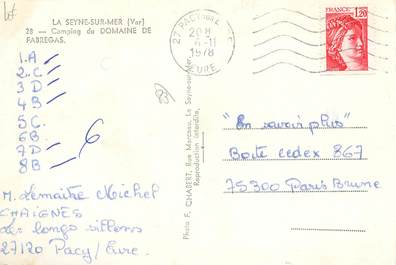 Lot.
LA SEYNE-SUR-MER (Var)
28 - Camping du DOMAINE DE
FABREGAS.
1.A
2.C
3 D
4 B
5 C.
6B
7D
8B
6
83
M. Lemaitre Michel
CHAIGNES
Les longs sillons
27120 Pacy/Eure.
Photo F. CHABERT, Rue Marceau, La Seyne-sur-Mer
Reproduction interdite.
27 PACY
20 H
6-11
1978
EURE
FRANCE
1,20
"En savoir plus"
Boite cedex 867
75300 Paris Brune